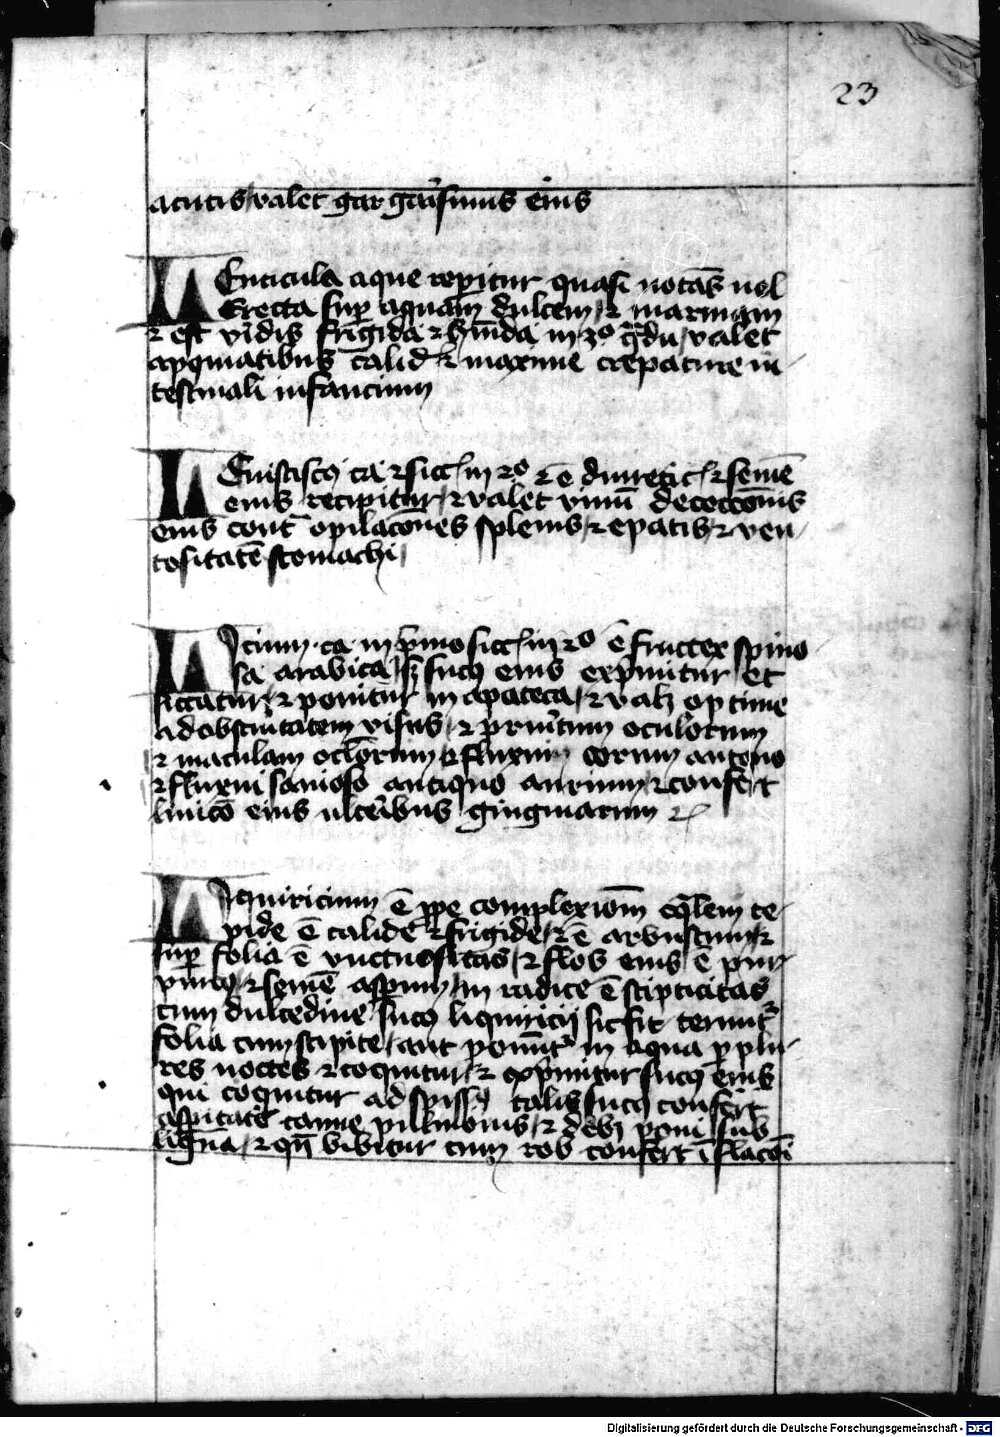 23
acutis valet gargarismus eius
Lenticula aque repitur quasi notans vel
Erecta sup aquam dulcem / et marinam
et est viridis frigida et humida in 3o gradu / valet
apostematibus calid et maxime crepature in
testinali infancium
Leuiscico ca et sicc in 2o et e diuretic et semen
eius recipitur / et valet vinum decoccionis
eius cont opilaciones splenis / et epatis et ven
tositatem stomachi
Licium ca in primo sicc in 2o e fructex spino
sa arabica / sucus eius exprimitur et
siccatur / et ponitur in apoteca / et valet optime
ad obscuritatem visus / et pruritum oculorum
et maculam oculorum et fluxum eorum antiquo
et fluxui sanioso antiquo aurium et confert
linicio eius ulceribus gingiuarum
Liquiricium e prope complexionem equalem te
pide e calide et frigide / et e arbustum et
sup folia e unctuositas / et flos eius e pur
pureus et semen asperum / in radice e stipticitas
cum dulcedine sucus liquiricii sic fit terunt
folia cum stipite / aut ponunt in aqua p plu
res noctes et coquitur / et exprimitur sucus eius
qui coquitur ad spiss talis sucus confert
asperitati canne pulmonis / et debet poni sub
lingua / et quando bibitur cum rob confert inflacioni
Digitalisierung gefördert durch die Deutsche Forschungsgemeinschaft - DFG